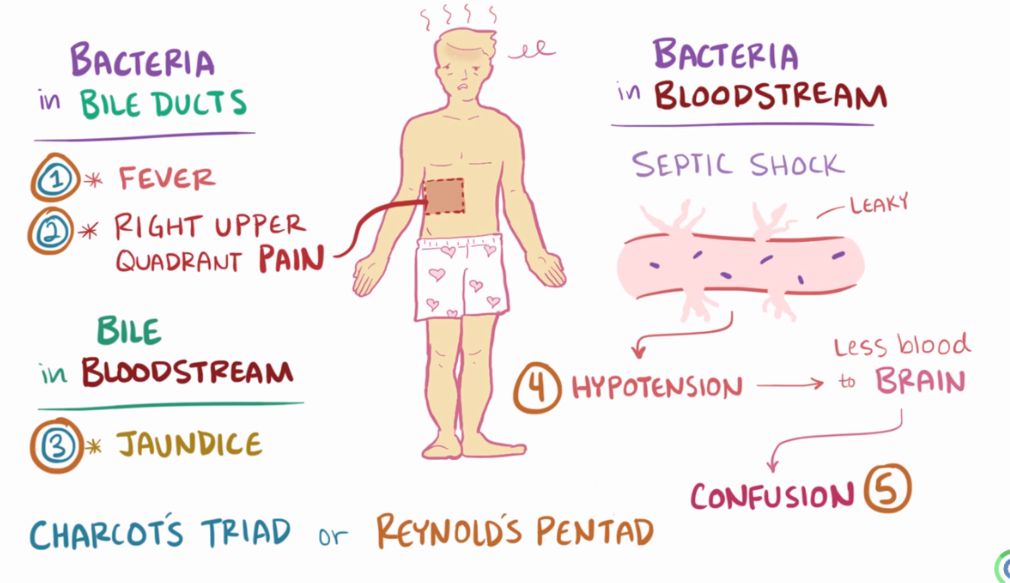 BACTERIA
in BILE DUCTS
1 * FEVER
2 * RIGHT UPPER
QUADRANT PAIN
BILE
in BLOODSTREAM
3 * JAUNDICE
BACTERIA
in BLOODSTREAM
SEPTIC SHOCK
LEAKY
4 HYPOTENSION
Less blood
to BRAIN
CONFUSION 5
CHARCOT'S TRIAD or REYNOLD'S PENTAD